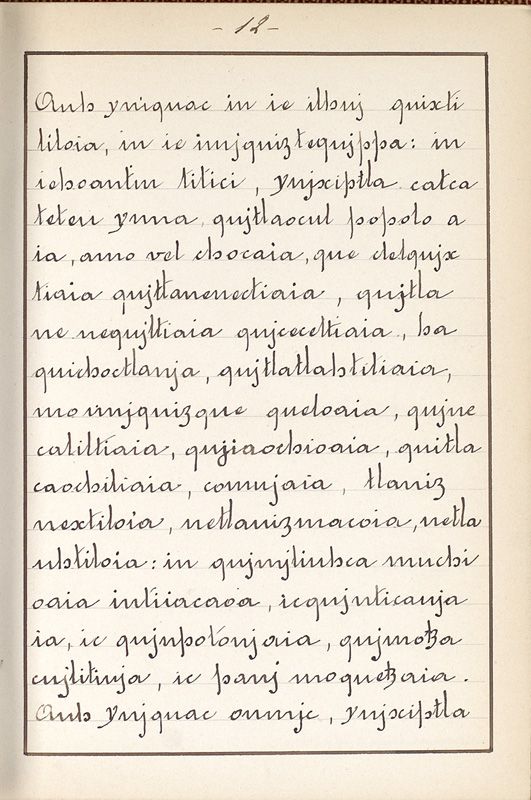 - 12 -
Auh ynjquac in ie ilhuj quixti
liloia, in ie imjquiztequjppa: in
iehoantin titici, ynjxiptla catca
teteu ynna, qujtlaocul popolo a
ia, amo vel chocaia, que delqujx
tiaia qujtlanenectiaia, qujtla
ne nequjltiaia qujceceltiaia, ha
quichoctlanja, qujtlatlahtiliaia,
momnjquizque queloaia, qujne
caliltiaia, qujiaochioaia, quitla
caochiliaia, comujaia, tlaniz
nextiloia, netlanizmacoia, netla
uhtiloia: in qujmjliuhca muchi
oaia intiiacaoa, icqujnticauja
ia, ic qujnpotonjaia, qujmotza
cujlitinja, ic panj moquetzaia.
Auh ynjquac onmjc, ynjxiptla